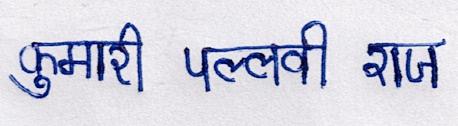 कुमारी पल्लवी राज